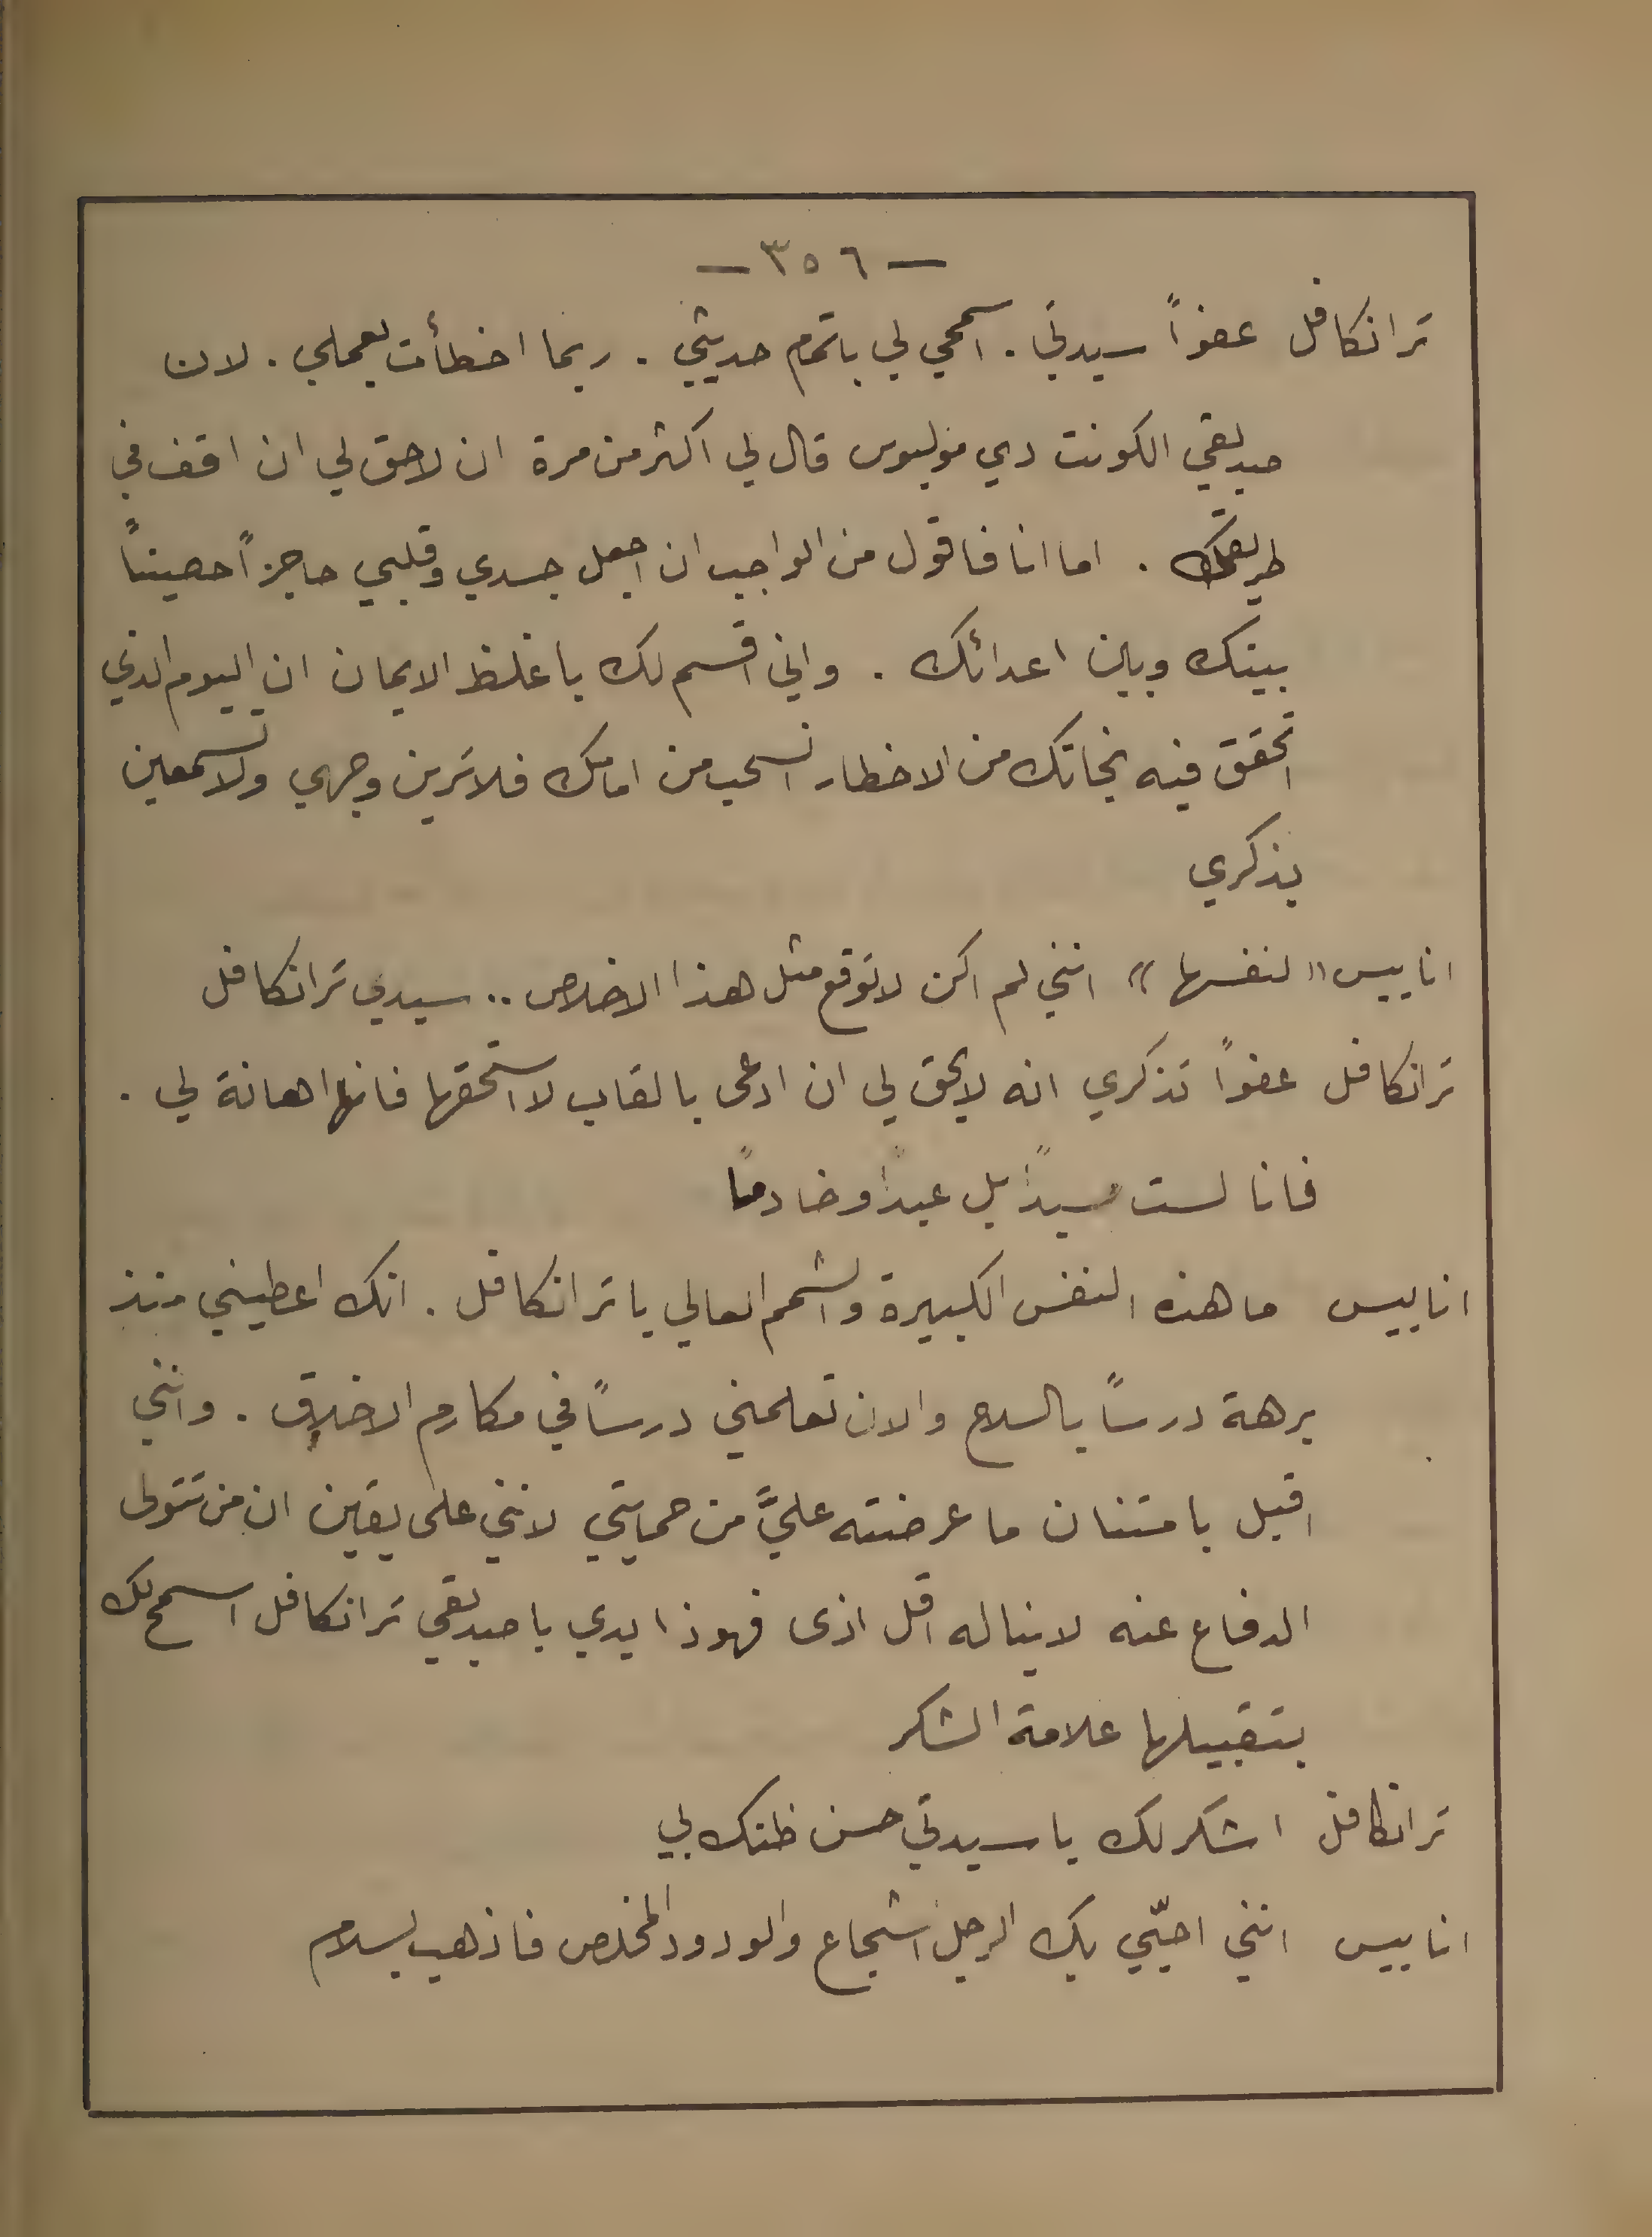 — ٣٥٦ —
ترانكافل عفواً سيدتي . اسمحي لي باتمام حديثي . ربما اخطأت بعملي . لان
صديقي الكونت دي موليوس قال لي اكثر من مرة ان لاحق لي ان اقف في
طريقك . اما انا فاقول من الواجب ان اجعل جسدي وقلبي حاجزاً حصيناً
بينك وبين اعدائك . واني اقسم لك باغلظ الايمان ان اليوم الذي
اتحقق فيه نجاتك من الاخطار انسحب من امامك فلا ترين وجهي ولا تسمعين
بذكري
اناييس « لنفسها » انني لم اكن لاتوقع مثل هذا الاخلاص .. سيدي ترانكافل
ترانكافل عفواً تذكري انه لايحق لي ان ادعى بالقاب لا استحقها فانها اهانة لي .
فانا لست سيداً بل عبداً وخادماً
اناييس ما هذه النفس الكبيرة والشمم العالي يا ترانكافل . انك اعطيتني منذ
برهة درساً بالسلاح والان تعلمني درساً في مكارم الاخلاق . وانني
اقبل بامتنان ما عرضته عليَّ من حمايتي لانني على يقين ان من تتولى
الدفاع عنه لايناله اقل اذى فهوذا يدي يا صديقي ترانكافل اسمح لك
بتقبيلها علامة الشكر
ترانكافل اشكر لك يا سيدتي حسن ظنك بي
اناييس انني احيّي بك الرجل الشجاع والودود المخلص فاذهب بسلام